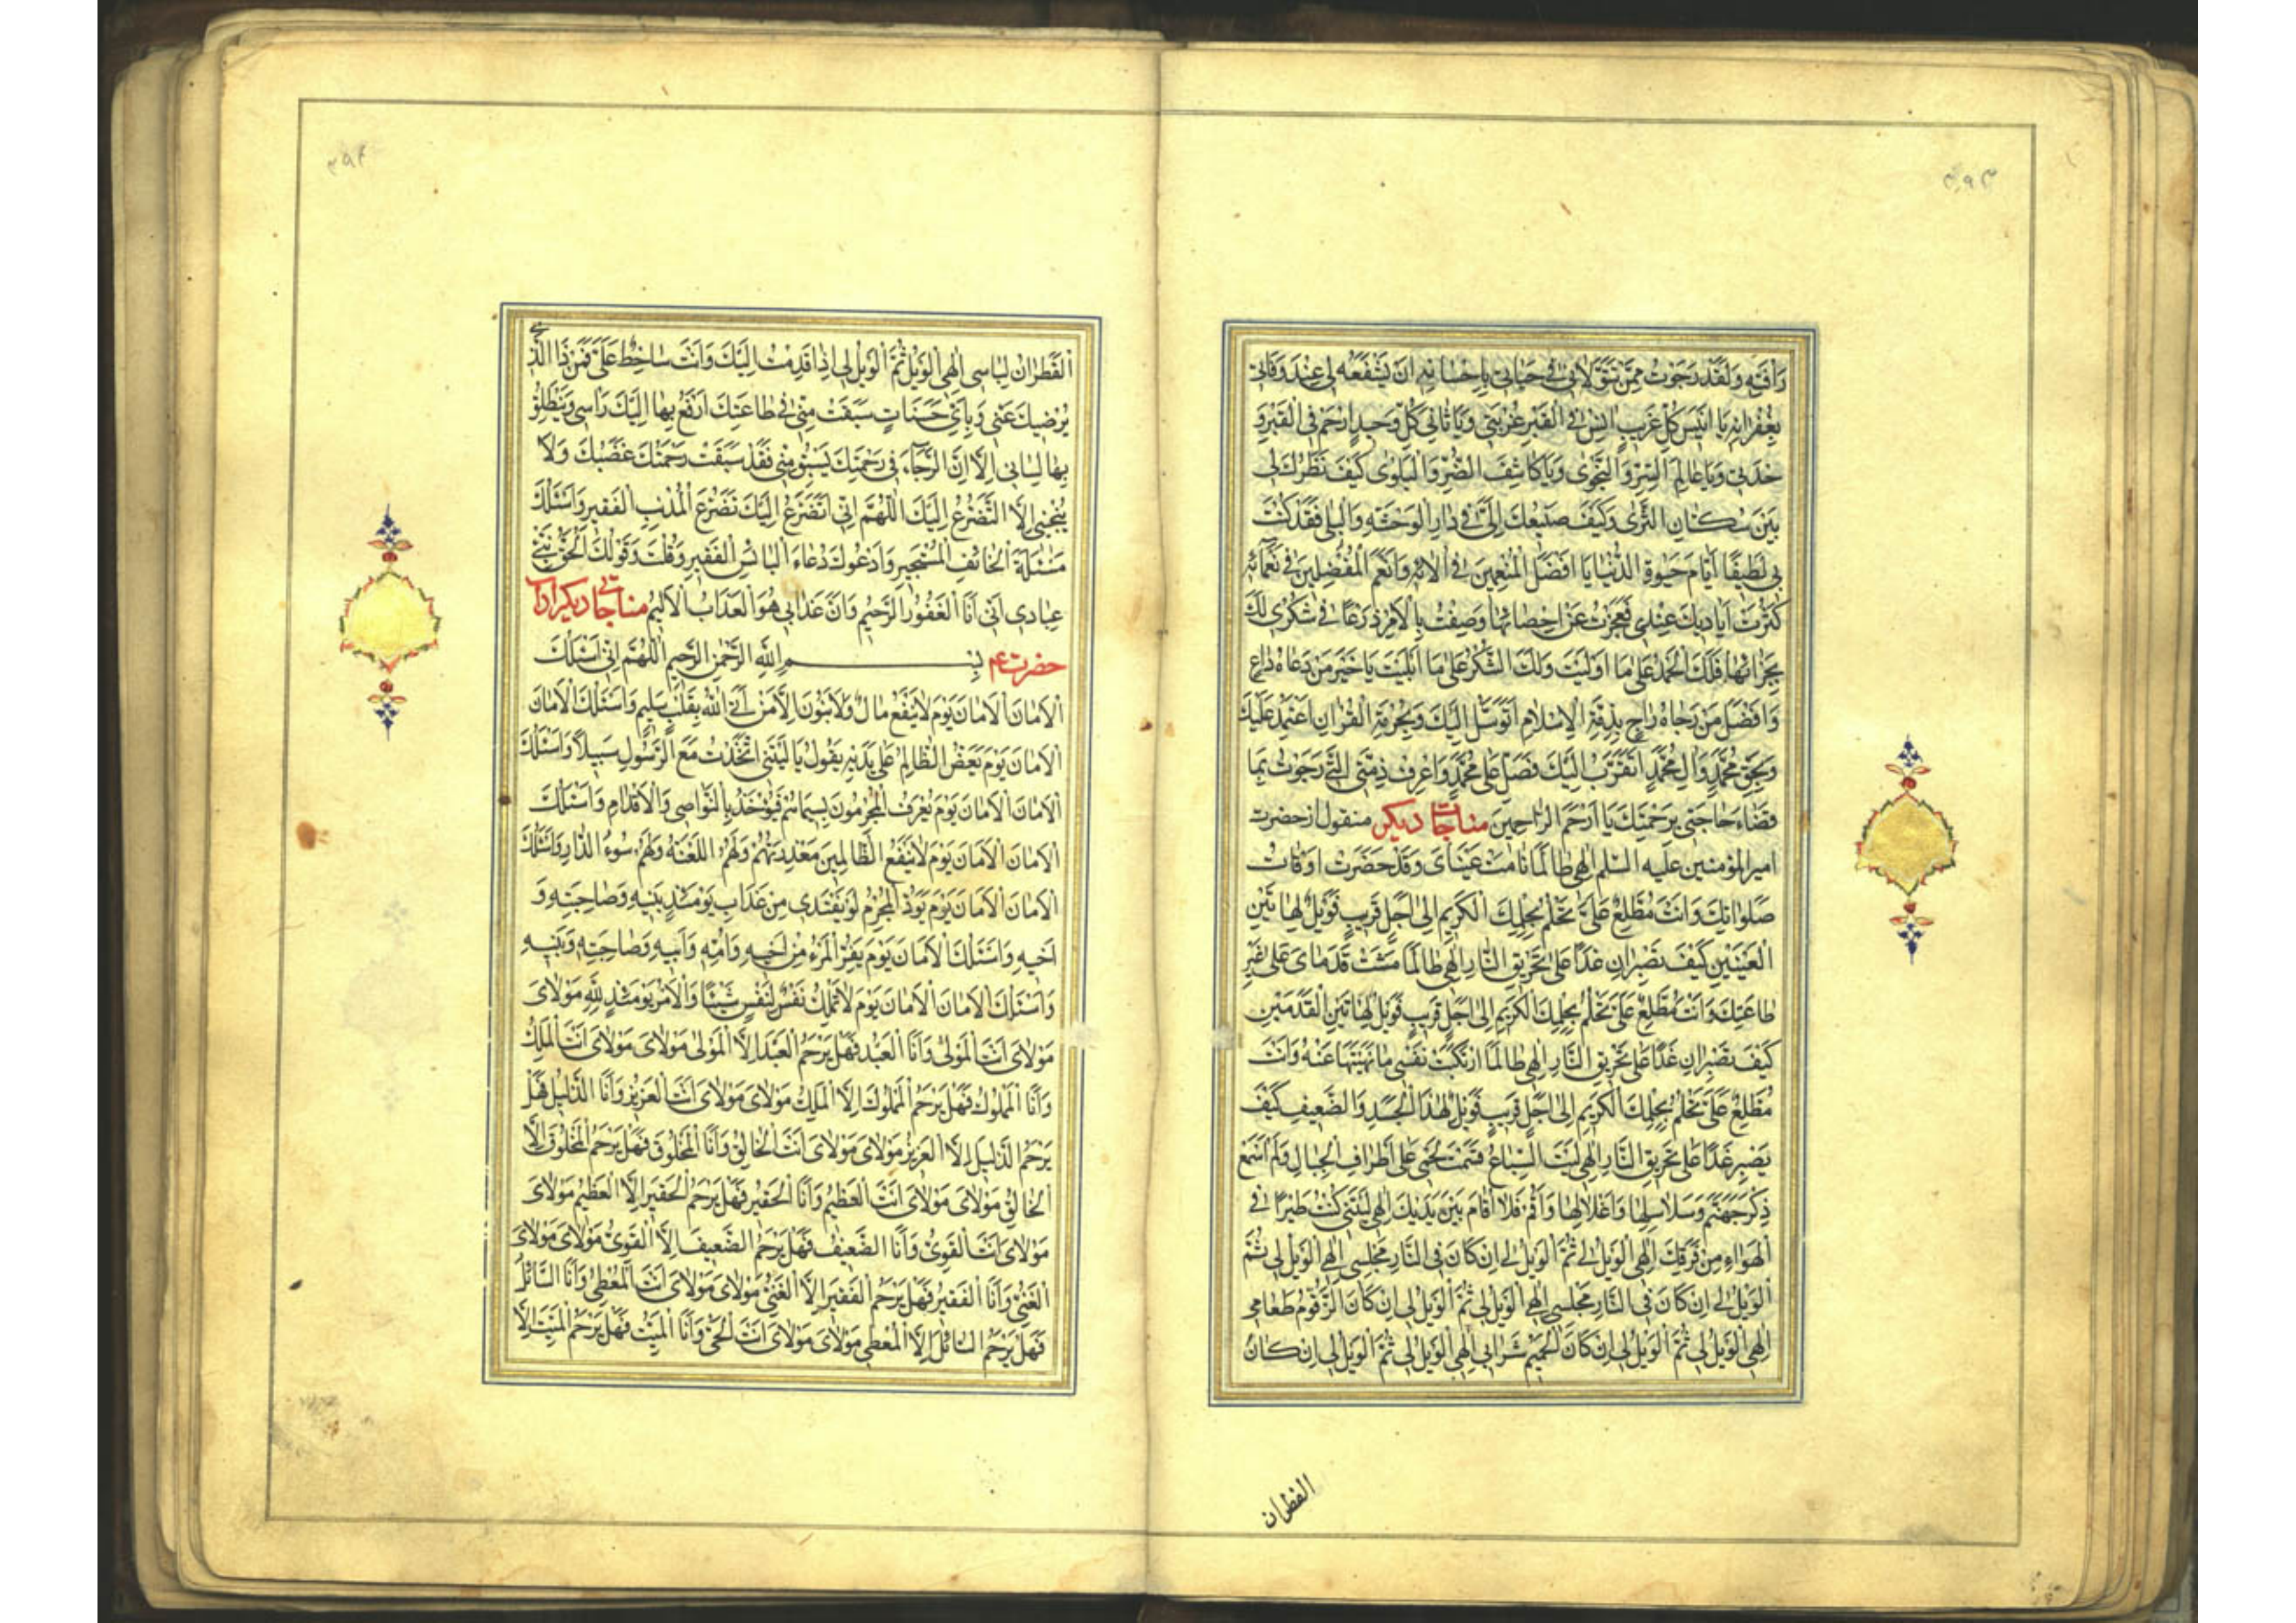 ۳۹۳
رَأْفَتِهِ وَلَقَدْ رَجَوْتُ مِمَّنْ تَوَلَّانِي فِي حَيَاتِي بِإِحْسَانِهِ أَنْ يَشْفَعَهُ لِي عِنْدَ وَفَاتِي
بِغُفْرَانِهِ يَا أَنِيسَ كُلِّ غَرِيبٍ آنِسْ فِي الْقَبْرِ غُرْبَتِي وَيَا ثَانِيَ كُلِّ وَحِيدٍ ارْحَمْ فِي الْقَبْرِ وَ
حْدَتِي وَيَا عَالِمَ السِّرِّ وَالنَّجْوَى وَيَا كَاشِفَ الضُّرِّ وَالْبَلْوَى كَيْفَ نَظَرُكَ لِي
بَيْنَ سُكَّانِ الثَّرَى وَكَيْفَ صَنِيعُكَ إِلَيَّ فِي دَارِ الْوَحْشَةِ وَالْبِلَى فَقَدْ كُنْتَ
بِي لَطِيفًا أَيَّامَ حَيَوةِ الدُّنْيَا يَا أَفْضَلَ الْمُنْعِمِينَ فِي آلَائِهِ وَأَنْعَمَ الْمُفْضِلِينَ فِي نَعْمَائِهِ
كَثُرَتْ أَيَادِيكَ عِنْدِي فَعَجَزْتُ عَنْ إِحْصَائِهَا وَضِقْتُ بِالْأَمْرِ ذَرْعًا فِي شُكْرِي لَكَ
بِجَزَائِهَا فَلَكَ الْحَمْدُ عَلَى مَا أَوْلَيْتَ وَلَكَ الشُّكْرُ عَلَى مَا أَبْلَيْتَ يَا خَيْرَ مَنْ دَعَاهُ دَاعٍ
وَأَفْضَلَ مَنْ رَجَاهُ رَاجٍ بِذِمَّةِ الْإِسْلَامِ أَتَوَسَّلُ إِلَيْكَ وَبِحُرْمَةِ الْقُرْآنِ أَعْتَمِدُ عَلَيْكَ
وَبِحَقِّ مُحَمَّدٍ وَآلِ مُحَمَّدٍ أَتَقَرَّبُ إِلَيْكَ فَصَلِّ عَلَى مُحَمَّدٍ وَاعْرِفْ ذِمَّتِيَ الَّتِي رَجَوْتُ بِهَا
قَضَاءَ حَاجَتِي بِرَحْمَتِكَ يَا أَرْحَمَ الرَّاحِمِينَ مناجات دیکر منقول از حضرت
امیر المؤمنین علیه السلم إِلَهِي طَالَمَا نَامَتْ عَيْنَايَ وَقَدْ حَضَرَتْ أَوْقَاتُ
صَلَوَاتِكَ وَأَنْتَ مُطَّلِعٌ عَلَيَّ تَحْلُمُ بِحِلْمِكَ الْكَرِيمِ إِلَى أَجَلٍ قَرِيبٍ فَوَيْلٌ لِهَاتَيْنِ
الْعَيْنَيْنِ كَيْفَ تَصْبِرَانِ غَدًا عَلَى تَحْرِيقِ النَّارِ إِلَهِي طَالَمَا مَشَتْ قَدَمَايَ عَلَى غَيْرِ
طَاعَتِكَ وَأَنْتَ مُطَّلِعٌ عَلَيَّ تَحْلُمُ بِحِلْمِكَ الْكَرِيمِ إِلَى أَجَلٍ قَرِيبٍ فَوَيْلٌ لِهَاتَيْنِ الْقَدَمَيْنِ
كَيْفَ تَصْبِرَانِ غَدًا عَلَى تَحْرِيقِ النَّارِ إِلَهِي طَالَمَا ارْتَكَبَتْ نَفْسِي مَا نَهَيْتَهَا عَنْهُ وَأَنْتَ
مُطَّلِعٌ عَلَيَّ تَحْلُمُ بِحِلْمِكَ الْكَرِيمِ إِلَى أَجَلٍ قَرِيبٍ فَوَيْلٌ لِهَذَا الْجَسَدِ وَالضَّعِيفِ كَيْفَ
يَصْبِرُ غَدًا عَلَى تَحْرِيقِ النَّارِ إِلَهِي لَيْتَ السِّبَاعَ قَسَمَتْ لَحْمِي عَلَى أَطْرَافِ الْجِبَالِ وَلَمْ أَسْمَعْ
ذِكْرَ جَهَنَّمَ وَسَلَاسِلِهَا وَأَغْلَالِهَا وَأَقُمْ فَلَا أُقَامُ بَيْنَ يَدَيْكَ إِلَهِي لَيْتَنِي كُنْتُ طَيْرًا فِي
الْهَوَاءِ مِنْ فَرَقِكَ إِلَهِي الْوَيْلُ لِي ثُمَّ الْوَيْلُ لِي إِنْ كَانَ فِي النَّارِ مَجْلِسِي إِلَهِي الْوَيْلُ لِي ثُمَّ
الْوَيْلُ لِي إِنْ كَانَ فِي النَّارِ مَجْلِسِي إِلَهِي الْوَيْلُ لِي ثُمَّ الْوَيْلُ لِي إِنْ كَانَ الزَّقُّومُ طَعَامِي
إِلَهِي الْوَيْلُ لِي ثُمَّ الْوَيْلُ لِي إِنْ كَانَ الْحَمِيمُ شَرَابِي إِلَهِي الْوَيْلُ لِي ثُمَّ الْوَيْلُ لِي إِنْ كَانَ
القطران
۳۹۴
الْقَطِرَانُ لِبَاسِي إِلَهِي الْوَيْلُ ثُمَّ الْوَيْلُ لِي إِذَا قَدِمْتُ إِلَيْكَ وَأَنْتَ سَاخِطٌ عَلَيَّ فَمَنْ ذَا الَّذِي
يُرْضِيكَ عَنِّي وَبِأَيِّ حَسَنَاتٍ سَبَقَتْ مِنِّي فِي طَاعَتِكَ أَرْفَعُ بِهَا إِلَيْكَ رَأْسِي وَيَنْطَلِقُ
بِهَا لِسَانِي إِلَّا أَنَّ الرَّجَاءَ فِي رَحْمَتِكَ يَسْبِقُ مِنِّي فَقَدْ سَبَقَتْ رَحْمَتُكَ غَضَبَكَ وَلَا
يُنْجِينِي إِلَّا التَّضَرُّعُ إِلَيْكَ اللَّهُمَّ إِنِّي أَتَضَرَّعُ إِلَيْكَ تَضَرُّعَ الْمُذْنِبِ الْفَقِيرِ وَأَسْئَلُكَ
مَسْئَلَةَ الْخَائِفِ الْمُسْتَجِيرِ وَأَدْعُوكَ دُعَاءَ الْبَائِسِ الْفَقِيرِ وَقُلْتَ وَقَوْلُكَ الْحَقُّ نَبِّئْ
عِبَادِي أَنِّي أَنَا الْغَفُورُ الرَّحِيمُ وَأَنَّ عَذَابِي هُوَ الْعَذَابُ الْأَلِيمُ مناجات دیکر از آن
حضرت عم بِسْمِ اللَّهِ الرَّحْمَنِ الرَّحِيمِ اللَّهُمَّ إِنِّي أَسْئَلُكَ
الْأَمَانَ الْأَمَانَ يَوْمَ لَا يَنْفَعُ مَالٌ وَلَا بَنُونَ إِلَّا مَنْ أَتَى اللَّهَ بِقَلْبٍ سَلِيمٍ وَأَسْئَلُكَ الْأَمَانَ
الْأَمَانَ يَوْمَ يَعَضُّ الظَّالِمُ عَلَى يَدَيْهِ يَقُولُ يَا لَيْتَنِي اتَّخَذْتُ مَعَ الرَّسُولِ سَبِيلًا وَأَسْئَلُكَ
الْأَمَانَ الْأَمَانَ يَوْمَ يُعْرَفُ الْمُجْرِمُونَ بِسِيمَاهُمْ فَيُؤْخَذُ بِالنَّوَاصِي وَالْأَقْدَامِ وَأَسْئَلُكَ
الْأَمَانَ الْأَمَانَ يَوْمَ لَا يَنْفَعُ الظَّالِمِينَ مَعْذِرَتُهُمْ وَلَهُمُ اللَّعْنَةُ وَلَهُمْ سُوءُ الدَّارِ وَأَسْئَلُكَ
الْأَمَانَ الْأَمَانَ يَوْمَ يَوَدُّ الْمُجْرِمُ لَوْ يَفْتَدِي مِنْ عَذَابِ يَوْمَئِذٍ بِبَنِيهِ وَصَاحِبَتِهِ وَ
أَخِيهِ وَأَسْئَلُكَ الْأَمَانَ يَوْمَ يَفِرُّ الْمَرْءُ مِنْ أَخِيهِ وَأُمِّهِ وَأَبِيهِ وَصَاحِبَتِهِ وَبَنِيهِ
وَأَسْئَلُكَ الْأَمَانَ الْأَمَانَ يَوْمَ لَا تَمْلِكُ نَفْسٌ لِنَفْسٍ شَيْئًا وَالْأَمْرُ يَوْمَئِذٍ لِلَّهِ مَوْلَايَ
مَوْلَايَ أَنْتَ الْمَوْلَى وَأَنَا الْعَبْدُ فَهَلْ يَرْحَمُ الْعَبْدَ إِلَّا الْمَوْلَى مَوْلَايَ مَوْلَايَ أَنْتَ الْمَلِكُ
وَأَنَا الْمَمْلُوكُ فَهَلْ يَرْحَمُ الْمَمْلُوكَ إِلَّا الْمَلِكُ مَوْلَايَ مَوْلَايَ أَنْتَ الْعَزِيزُ وَأَنَا الذَّلِيلُ فَهَلْ
يَرْحَمُ الذَّلِيلَ إِلَّا الْعَزِيزُ مَوْلَايَ مَوْلَايَ أَنْتَ الْخَالِقُ وَأَنَا الْمَخْلُوقُ فَهَلْ يَرْحَمُ الْمَخْلُوقَ إِلَّا
الْخَالِقُ مَوْلَايَ مَوْلَايَ أَنْتَ الْعَظِيمُ وَأَنَا الْحَقِيرُ فَهَلْ يَرْحَمُ الْحَقِيرَ إِلَّا الْعَظِيمُ مَوْلَايَ
مَوْلَايَ أَنْتَ الْقَوِيُّ وَأَنَا الضَّعِيفُ فَهَلْ يَرْحَمُ الضَّعِيفَ إِلَّا الْقَوِيُّ مَوْلَايَ مَوْلَايَ
الْغَنِيُّ وَأَنَا الْفَقِيرُ فَهَلْ يَرْحَمُ الْفَقِيرَ إِلَّا الْغَنِيُّ مَوْلَايَ مَوْلَايَ أَنْتَ الْمُعْطِي وَأَنَا السَّائِلُ
فَهَلْ يَرْحَمُ السَّائِلَ إِلَّا الْمُعْطِي مَوْلَايَ مَوْلَايَ أَنْتَ الْحَيُّ وَأَنَا الْمَيِّتُ فَهَلْ يَرْحَمُ الْمَيِّتَ إِلَّا